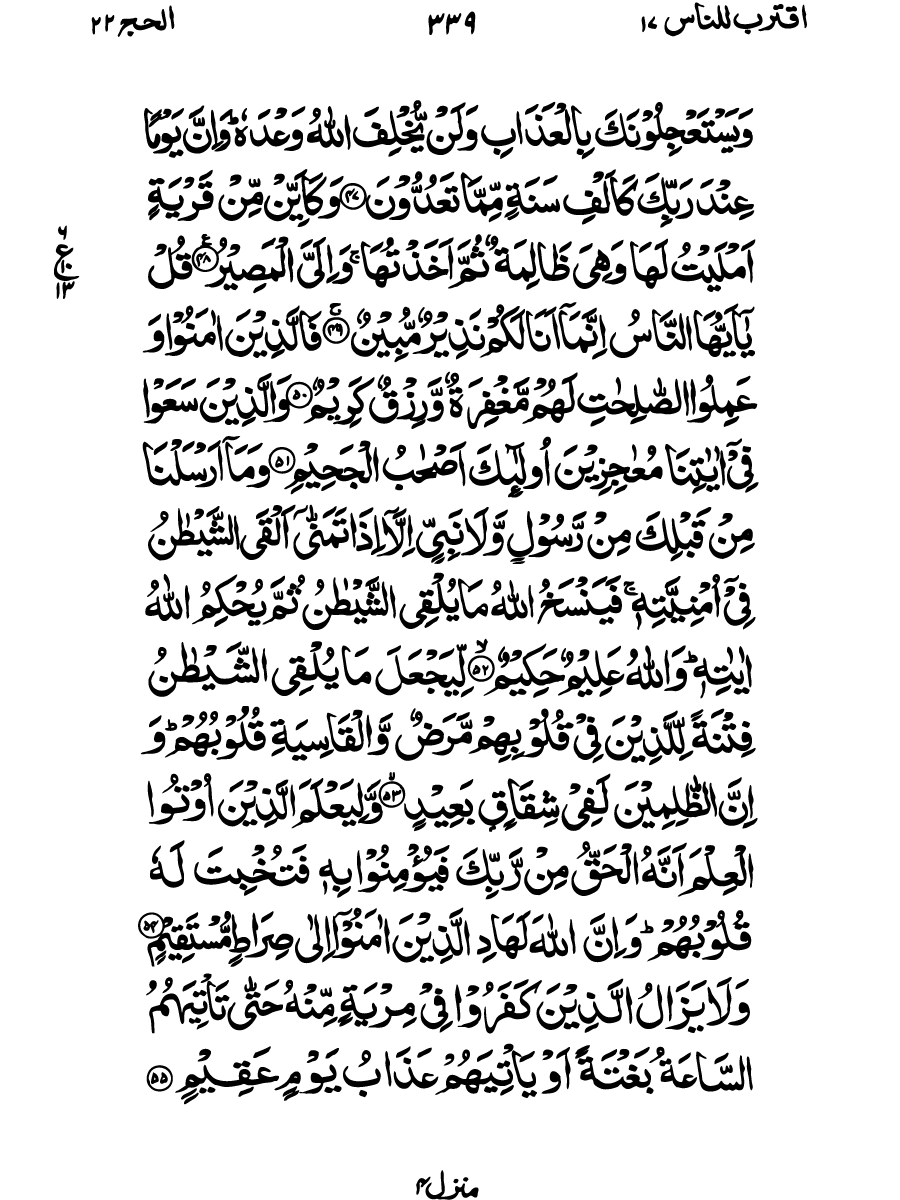 اقترب للناس ۱۷
۳۳۹
الحج ۲۲
وَيَسْتَعْجِلُوْنَكَ بِالْعَذَابِ وَلَنْ يُّخْلِفَ اللّٰهُ وَعْدَهٗ ؕ وَاِنَّ يَوْمًا
عِنْدَ رَبِّكَ كَاَلْفِ سَنَةٍ مِّمَّا تَعُدُّوْنَ ﴿۴۷﴾ وَكَاَيِّنْ مِّنْ قَرْيَةٍ
اَمْلَيْتُ لَهَا وَهِىَ ظَالِمَةٌ ثُمَّ اَخَذْتُهَا ۚ وَاِلَىَّ الْمَصِيْرُ ﴿۴۸﴾ قُلْ
يٰۤاَيُّهَا النَّاسُ اِنَّمَاۤ اَنَا لَكُمْ نَذِيْرٌ مُّبِيْنٌ ۚ﴿۴۹﴾ فَالَّذِيْنَ اٰمَنُوْا وَ
عَمِلُوا الصّٰلِحٰتِ لَهُمْ مَّغْفِرَةٌ وَّرِزْقٌ كَرِيْمٌ ﴿۵۰﴾ وَالَّذِيْنَ سَعَوْا
فِىْۤ اٰيٰتِنَا مُعٰجِزِيْنَ اُولٰٓئِكَ اَصْحٰبُ الْجَحِيْمِ ﴿۵۱﴾ وَمَاۤ اَرْسَلْنَا
مِنْ قَبْلِكَ مِنْ رَّسُوْلٍ وَّلَا نَبِىٍّ اِلَّاۤ اِذَا تَمَنّٰىۤ اَلْقَى الشَّيْطٰنُ
فِىْۤ اُمْنِيَّتِهٖ ۚ فَيَنْسَخُ اللّٰهُ مَا يُلْقِى الشَّيْطٰنُ ثُمَّ يُحْكِمُ اللّٰهُ
اٰيٰتِهٖ ؕ وَاللّٰهُ عَلِيْمٌ حَكِيْمٌ ۙ﴿۵۲﴾ لِّيَجْعَلَ مَا يُلْقِى الشَّيْطٰنُ
فِتْنَةً لِّلَّذِيْنَ فِىْ قُلُوْبِهِمْ مَّرَضٌ وَّالْقَاسِيَةِ قُلُوْبُهُمْ ؕ وَ
اِنَّ الظّٰلِمِيْنَ لَفِىْ شِقَاقٍۭ بَعِيْدٍ ۙ﴿۵۳﴾ وَّلِيَعْلَمَ الَّذِيْنَ اُوْتُوا
الْعِلْمَ اَنَّهُ الْحَقُّ مِنْ رَّبِّكَ فَيُؤْمِنُوْا بِهٖ فَتُخْبِتَ لَهٗ
قُلُوْبُهُمْ ؕ وَاِنَّ اللّٰهَ لَهَادِ الَّذِيْنَ اٰمَنُوْۤا اِلٰى صِرَاطٍ مُّسْتَقِيْمٍ ﴿۵۴﴾
وَلَا يَزَالُ الَّذِيْنَ كَفَرُوْا فِىْ مِرْيَةٍ مِّنْهُ حَتّٰى تَاْتِيَهُمُ
السَّاعَةُ بَغْتَةً اَوْ يَاْتِيَهُمْ عَذَابُ يَوْمٍ عَقِيْمٍ ﴿۵۵﴾
۶
ع
۱۰
۱۳
منزل ۴